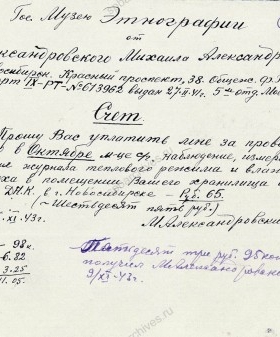 Гос. Музею Этнографии
от
ександровского Михаила Александр
восибирск. Красный проспект, 38. Общеж.
порт IX-РТ-№613962 выдан 27-II-41г. 5ым отд. Ми
Счет.
Прошу Вас уплатить мне за прове
е в Октябре м-це с/г. наблюдение, измер
ия журнала теплового режима и влаг
уха в помещении Вашего хранилища в
ДНК. в г. Новосибирске - Руб. 65.
(~ Шестьдесят пять руб.)
XI-43г. М.Александровски
- 98к.
- 6.82
3.25
1.05.
Пятьдесят три руб. 95 коп
получил М.Александрован
9/XI-43г.
archives.ru